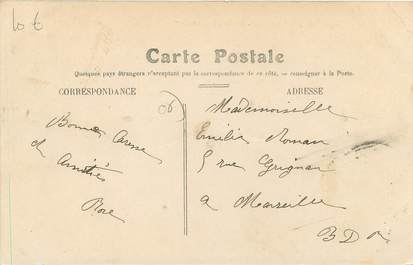 10 €
Carte Postale
Quelques pays étrangers n'acceptant pas la correspondance de ce côté, se renseigner à la Poste.
CORRESPONDANCE
ADRESSE
06
Bonnes Caresse
& Amitiés
Rose
Mademoiselle
Emilie Romani
5 rue Grignan
à Marseille
B D R